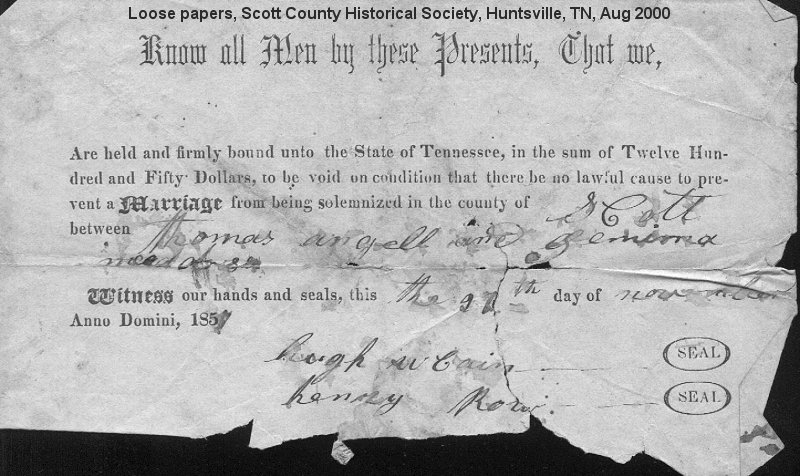 Loose papers, Scott County Historical Society, Huntsville, TN, Aug 2000
Know all Men by these Presents, That we,
Are held and firmly bound unto the State of Tennessee, in the sum of Twelve Hun-
dred and Fifty Dollars, to be void on condition that there be no lawful cause to pre-
vent a Marriage from being solemnized in the county of Scott
between thomas angell and
Witness our hands and seals, this the day of november
Anno Domini, 1857
hugh m Cain SEAL
henry SEAL